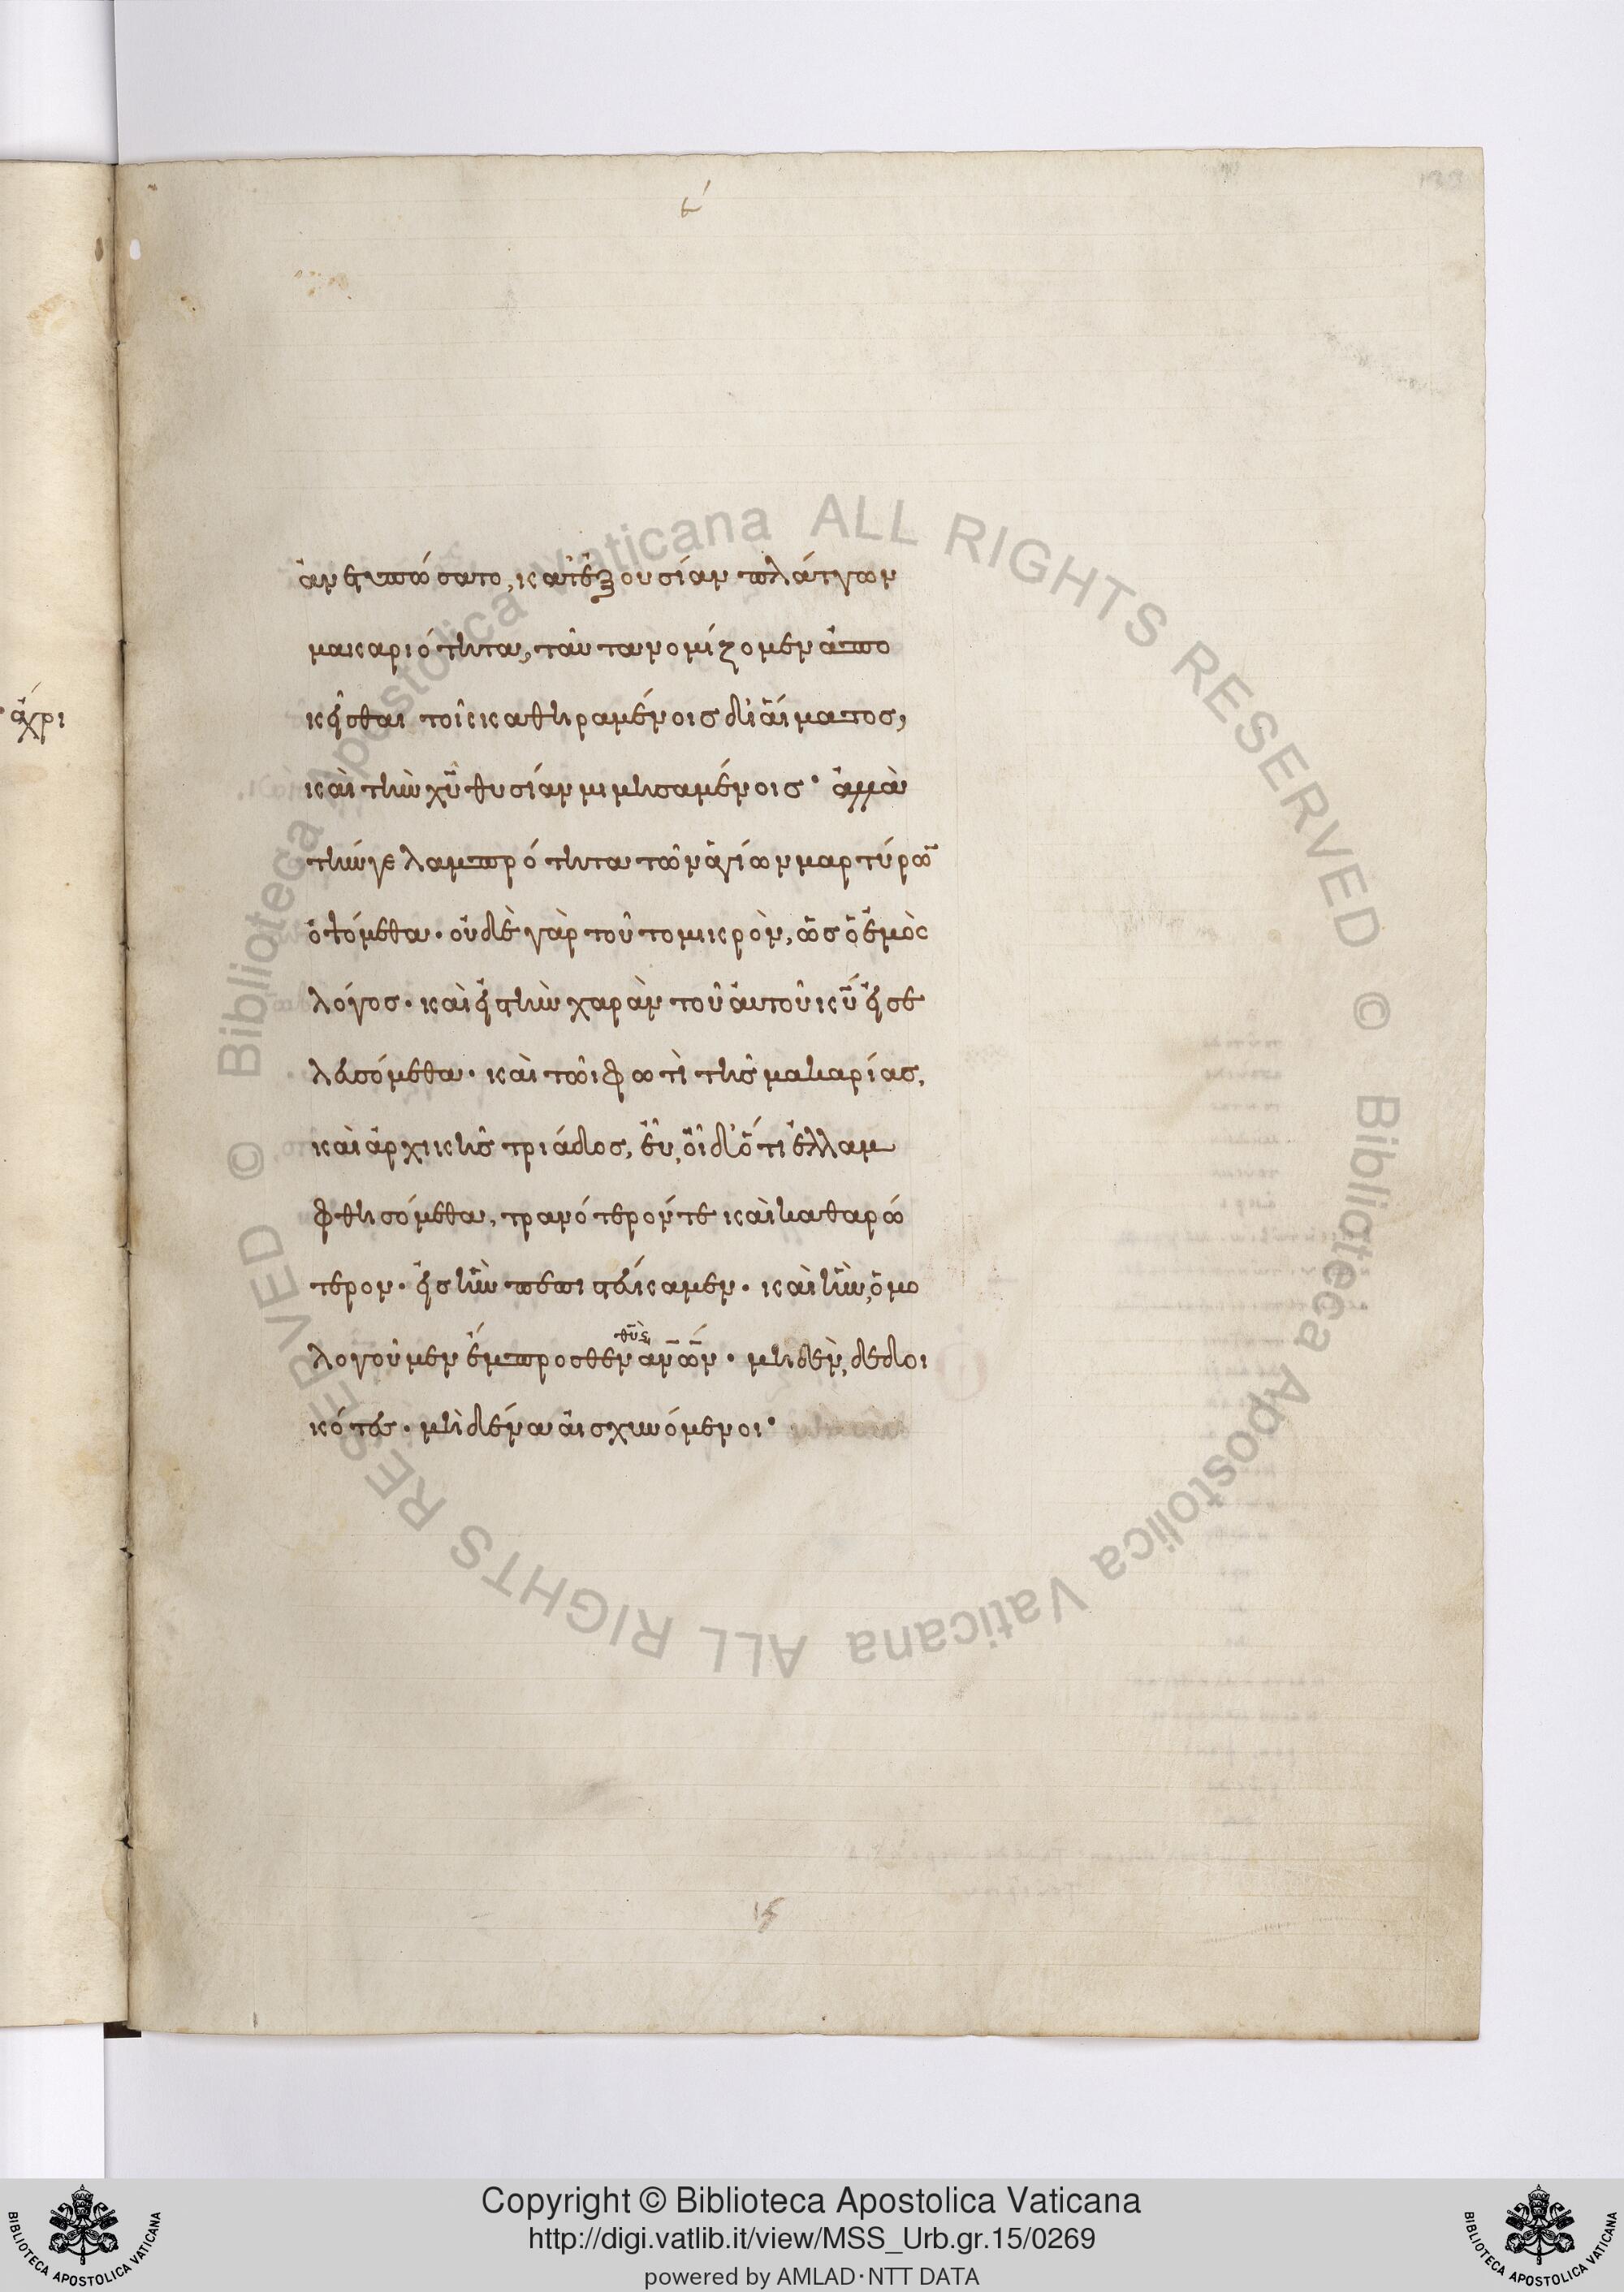 ἀνετυπώσατο, κατ' ἐξουσίαν πλάττων
μακαριότητα, ταῦτα νομίζομεν ἀπο
κεῖσθαι τοῖς καθηραμένοις δι' αἵματος,
καὶ τὴν χῦ θυσίαν μιμησαμένοις· ἀλλὰ
τήν γε λαμπρότητα τῶν ἁγίων μαρτύρων
ὀψόμεθα· οὐδὲ γὰρ τοῦτο μικρὸν, ὡς ὁ ἐμὸς
λόγος· καὶ εἰς τὴν χαρὰν τοῦ αὐτοῦ κυ εἰσε
λευσόμεθα· καὶ τῶι φωτὶ τῆς μακαρίας,
καὶ ἀρχικῆς τριάδος, εὖ οἶδ' ὅτι ἐλλαμ
φθησόμεθα, τρανότερόν τε καὶ καθαρώ
τερον· εἰς ἣν πεπιστεύκαμεν· καὶ ἣν ὁμο
λογοῦμεν ἔμπροσθεν θῦ κ, ἀνων· μηδὲν δεδοι
κότες· μηδένα αἰσχυνόμενοι·
ἄχρι
Copyright © Biblioteca Apostolica Vaticana
http://digi.vatlib.it/view/MSS_Urb.gr.15/0269
powered by AMLAD·NTT DATA
BIBLIOTECA APOSTOLICA VATICANA
BIBLIOTECA APOSTOLICA VATICANA
Biblioteca Apostolica Vaticana ALL RIGHTS RESERVED ©
Biblioteca Apostolica Vaticana ALL RIGHTS RESERVED ©